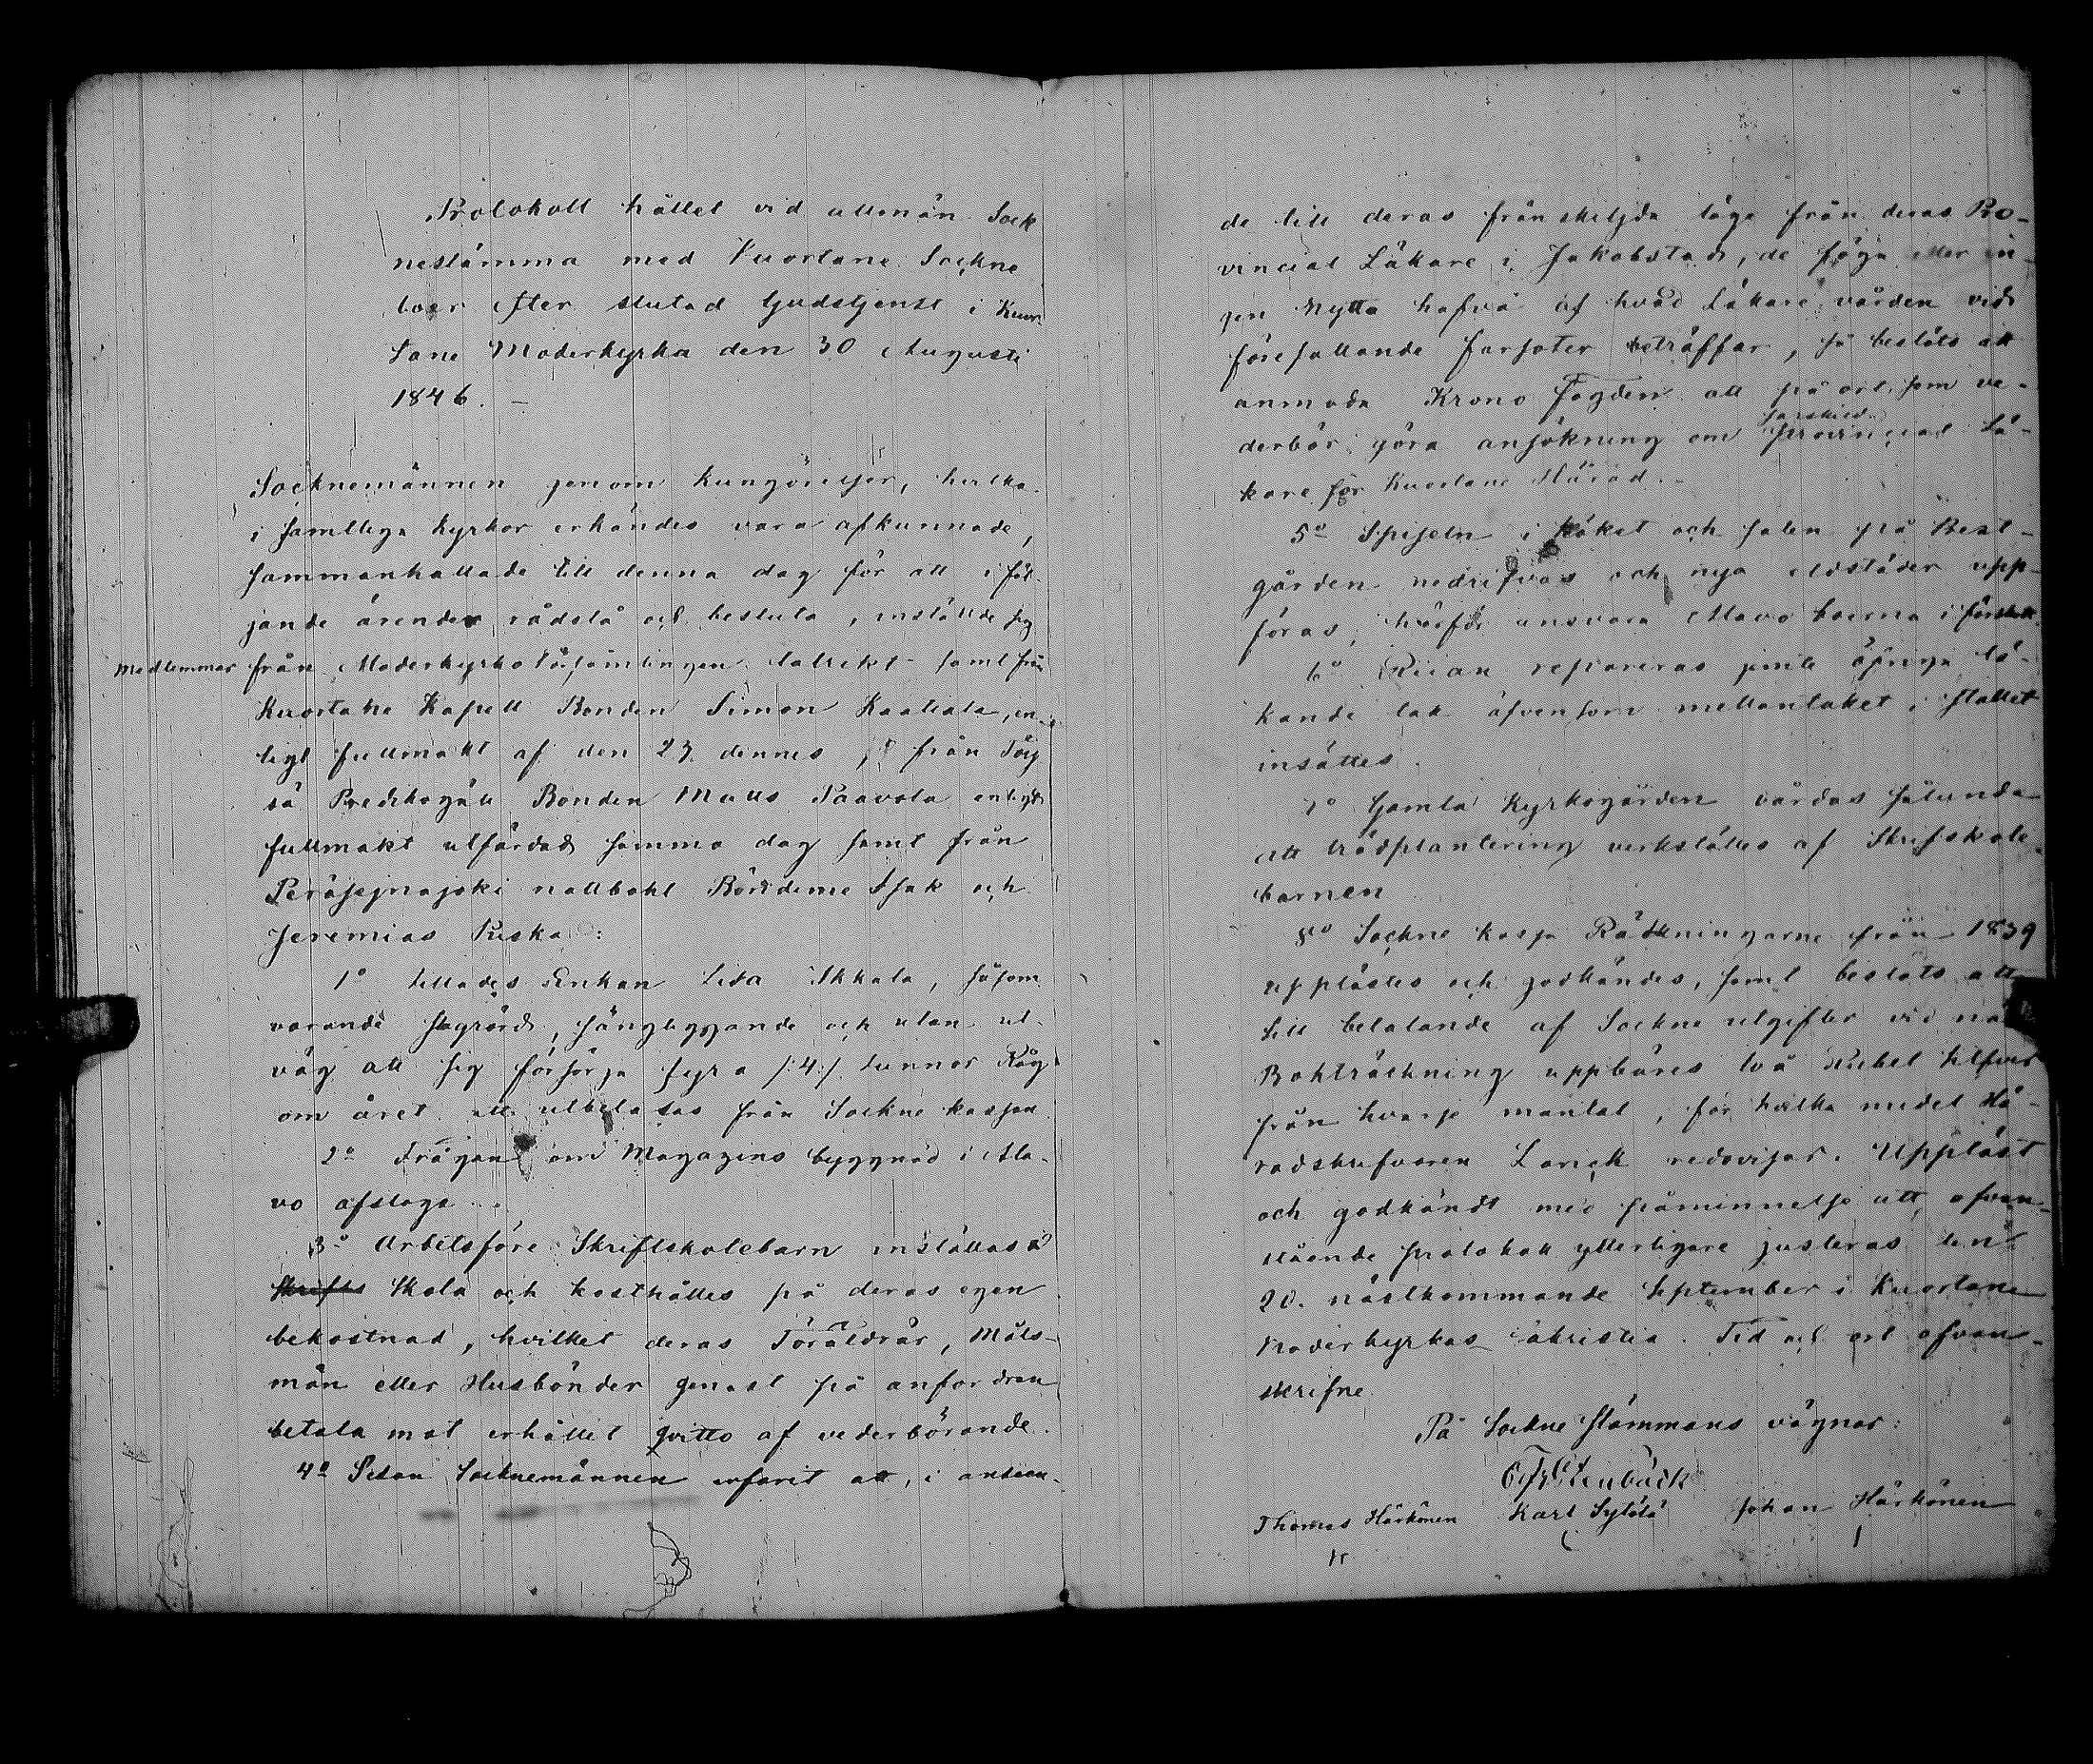 Protokoll hållet vid allmän Sock
nestämma med Kuortane Sockne
boer efter slutad Gudstjenst i Kuor
tane Moderkyrka den 30 Augusti
1846. -
Socknemännen genom Kungörelser, hvilka
i samtliga kyrkor erkändes vara afkunnade,
sammankallade till denna dag för att i föl-
jande ärender rådslå och besluta, inställde sig
Medlemmar från Moderkyrko Församlingen talrikt samt från
Kuortane Kapell Bonden Simon Kaatiala, en-
ligt fullmakt af den 23 dennes, från Töy
sä Predikogäll Bonden Matts Paavola enligt
fullmakt utfärdad samma dag samt från
Peräsejnajoki nattbohl Bönderne Isak och
Jeremias Puska:
1º tillades Enkan Lisa Ikkala, såsom
varande , sängliggande och utan ut-
väg att sig försörja fyra /:4:/ tunnor Råg
om året att utbetalas från Sockne kassan
2º Frågan om Magazins byggnad i Ala-
vo afslogs.
3º Arbetsföre Skriftskolebarn inställas i
Skrifts Skola och kosthålles på deras egen
bekostnad, hvilket deras Föräldrar, Måls-
män eller Husbönder genast på anfordran
betala mot erhållet qvitto af vederbörande.
4º Sedan Socknemännen erfarit att, i anseen-
de till deras frånskiljda läge från deras Pro-
vincial Läkare i Jakobstad, de föga eller in-
gen nytta hafva af hvad Läkare vården vid
förefallande farsoter beträffar, så beslöts att
anmoda Krono Fogden att på ort som ve-
derbör göra ansökning om
särskild
provincial Lä-
kare för Kuortane Härad. -
5º Spiseln i köket och salen på Best-
gården nedrifvas och nya eldstäder upp-
föras, hvarför ansvara Alavo boerna i
6º Riian repareras jemte öfriga lä-
kande tak äfvensom mellantaket i stallet
insättes.
7º Gamla Kyrkogården vårdas sålunda
att trädplantering verkställes af Skrifskole-
barnen
8º Sockne kassa Räkningarne från 1839
upplästes och godkändes, samt beslöts att
till betalande af Sockne utgifter vid
Bokträckning uppbäres två Rubel silfver
från hvarje mantal, för hvilka medel Hä-
radsskrifvaren redovisar. Uppläst
och godkändt med påminnelse att ofvan-
stående protokoll ytterligare justeras den
20. nästkommande September i Kuortane
Moderkyrkas Sakristia. Tid och ort ofvan-
skrifne
På Sockne Stämmans vägnar:
Stenbäck
Thomas Härkönen Karl Johan Härkönen